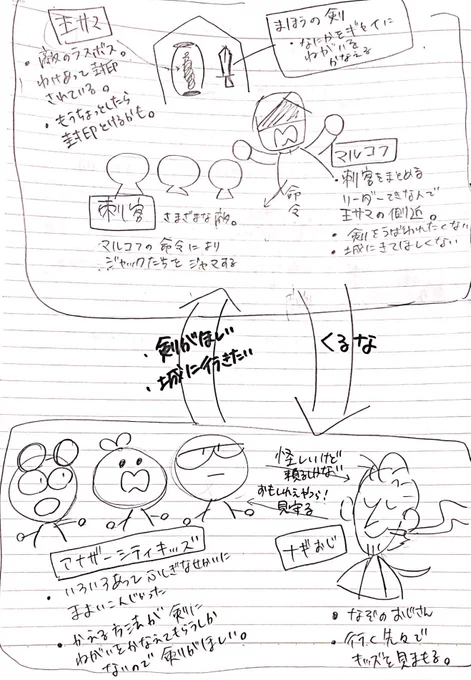 王サマ
・敵のラスボス。
わけあって封印
されている。
・もうちょっとしたら
封印とけるかも。
まほうの剣
・なにかをギセイに
ねがいを
かなえる
マルコフ
・刺客をまとめる
リーダー的なんで
王サマの側近。
・剣をうばわれたくない
・城にきてほしくない
命令
刺客
さまざまな敵。
マルコフの命令により
ジャックたちをジャマする
・剣がほしい
・城に行きたい
くるな
怪しいけど
頼るしかない
おもしれぇやつら!
見守る
アナザーシティキッズ
・いろいろあってふしぎなせかいに
まよいこんじゃった
・かえる方法が剣に
ねがいをかなえてもらうしか
ないので剣がほしい。
ナギおじ
・なぞのおじさん
・行く先々で
キッズを見まもる。